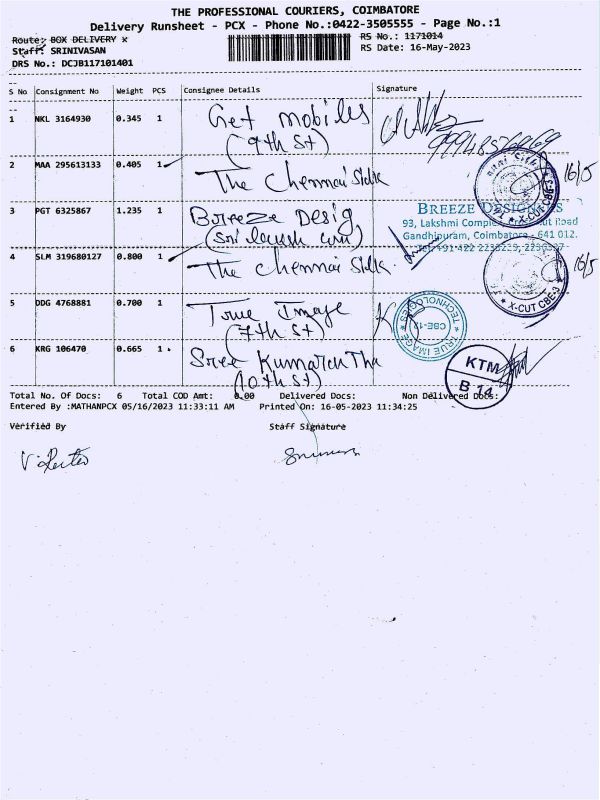 THE PROFESSIONAL COURIERS, COIMBATORE
Delivery Runsheet - PCX - Phone No.:0422-3505555 - Page No.:1
Route: BOX DELIVERY x
RS No.: 1171014
Staff: SRINIVASAN
RS Date: 16-May-2023
DRS No.: DCJB117101401
S No Consignment No Weight PCS Consignee Details Signature
1 NKL 3164930 0.345 1 Get mobiles
(9th St)
2 MAA 295613133 0.405 1 The Chennai Silks 16/5
3 PGT 6325867 1.235 1 Breeze Desig
BREEZE DESIGNERS
93, Lakshmi Complex
Road
Gandhipuram, Coimbatore - 641 012.
4 SLM 319680127 0.800 1 The Chennai Silks 16/5
X-CUT CBE-3
5 DDG 4768881 0.700 1 True Image
(7th St)
TRUE IMAGE TECHNOLOGIES
CBE-12
6 KRG 106470 0.665 1 Sree Kumaran Tha
(10th St)
KTM
B 14
Total No. Of Docs: 6 Total COD Amt: 0.00 Delivered Docs: Non Delivered Docs:
Entered By :MATHANPCX 05/16/2023 11:33:11 AM Printed On: 16-05-2023 11:34:25
Verified By Staff Signature